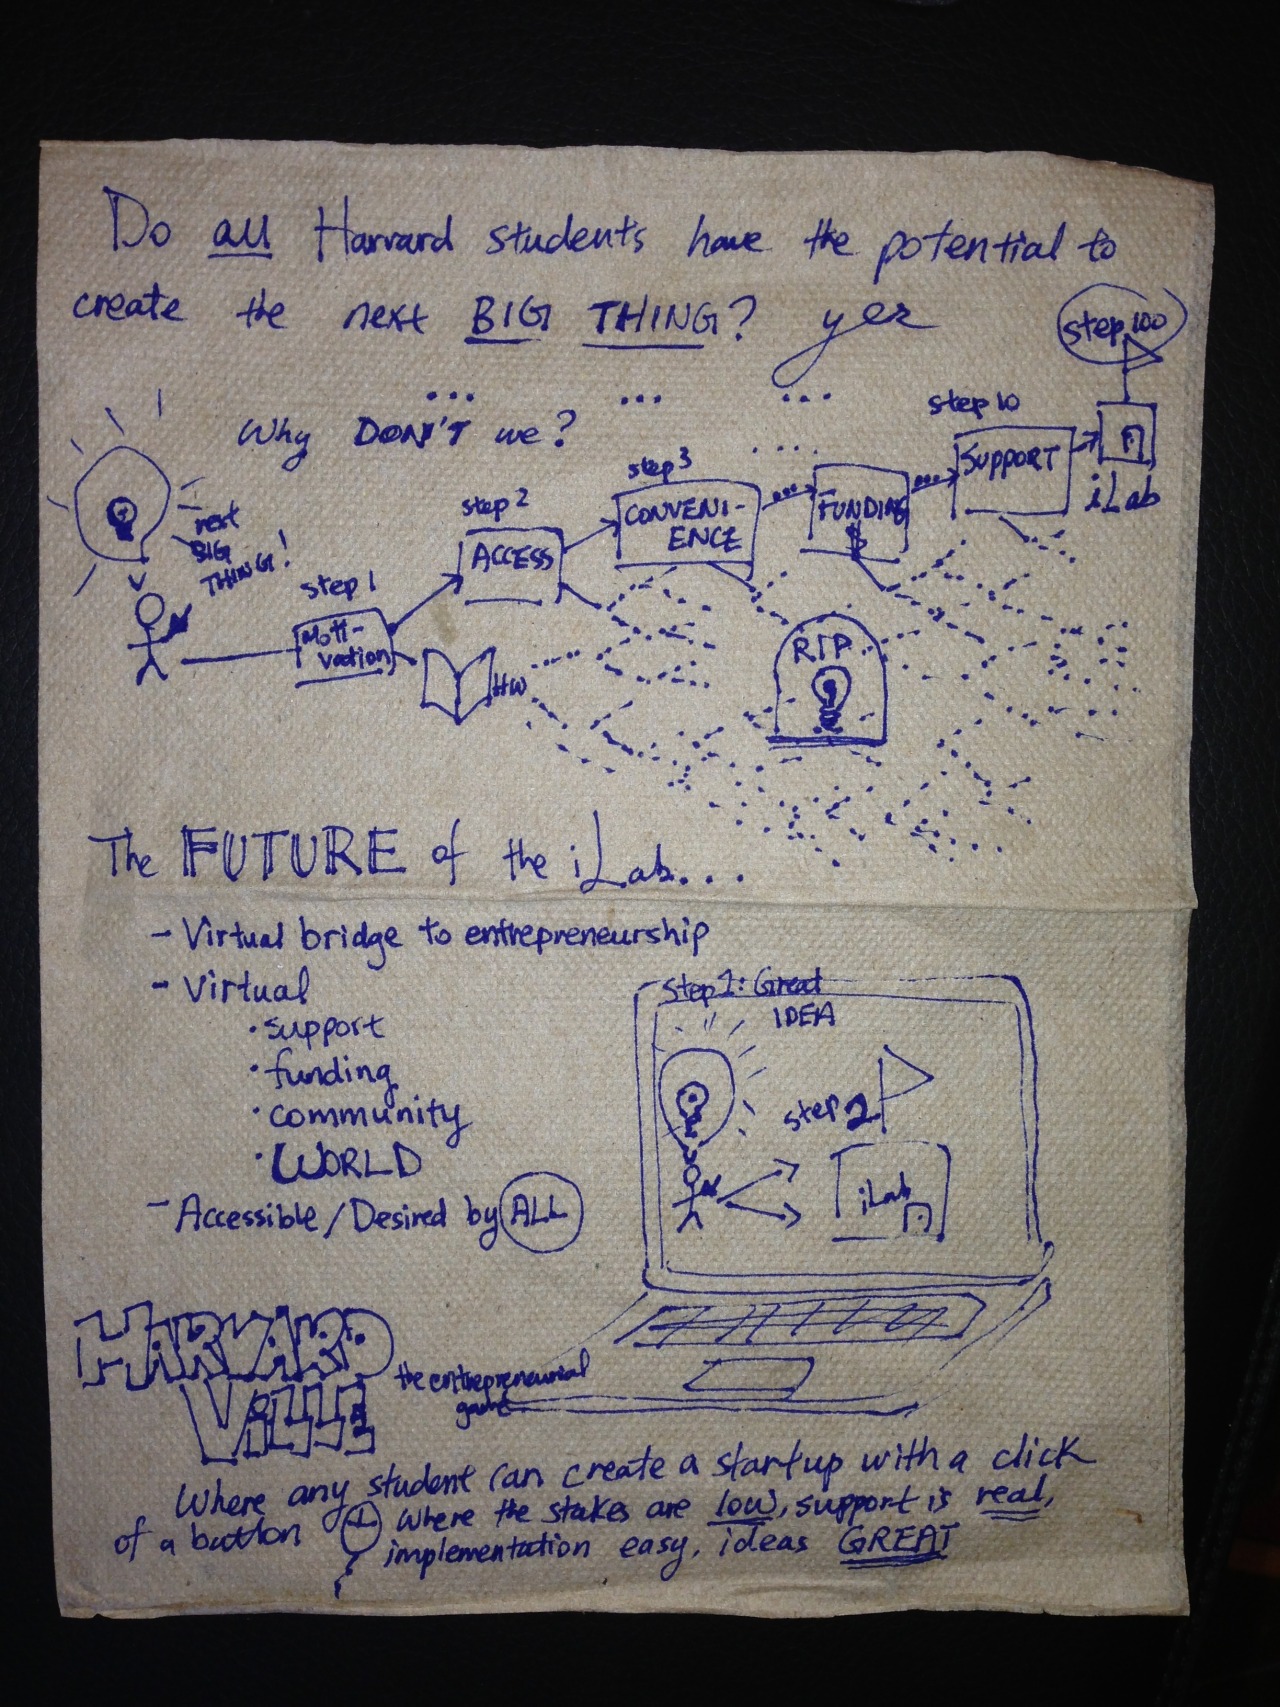 Do all Harvard students have the potential to
create the next BIG THING? yes
step 100
Why DON'T we?
step 10
SUPPORT
iLab
step 3
CONVENI-
ENCE
FUNDING
$
step 2
ACCESS
next
BIG
THING!
step 1
Moti-
vation
HW
RIP
The FUTURE of the iLab...
- Virtual bridge to entrepreneurship
- Virtual
• support
• funding
• community
• WORLD
- Accessible/Desired by ALL
Step 1: Great
IDEA
step 2
iLab
HARVARD
ViLLE
the entrepreneurial
game
Where any student can create a startup with a click
of a button
Where the stakes are low, support is real,
implementation easy, ideas GREAT